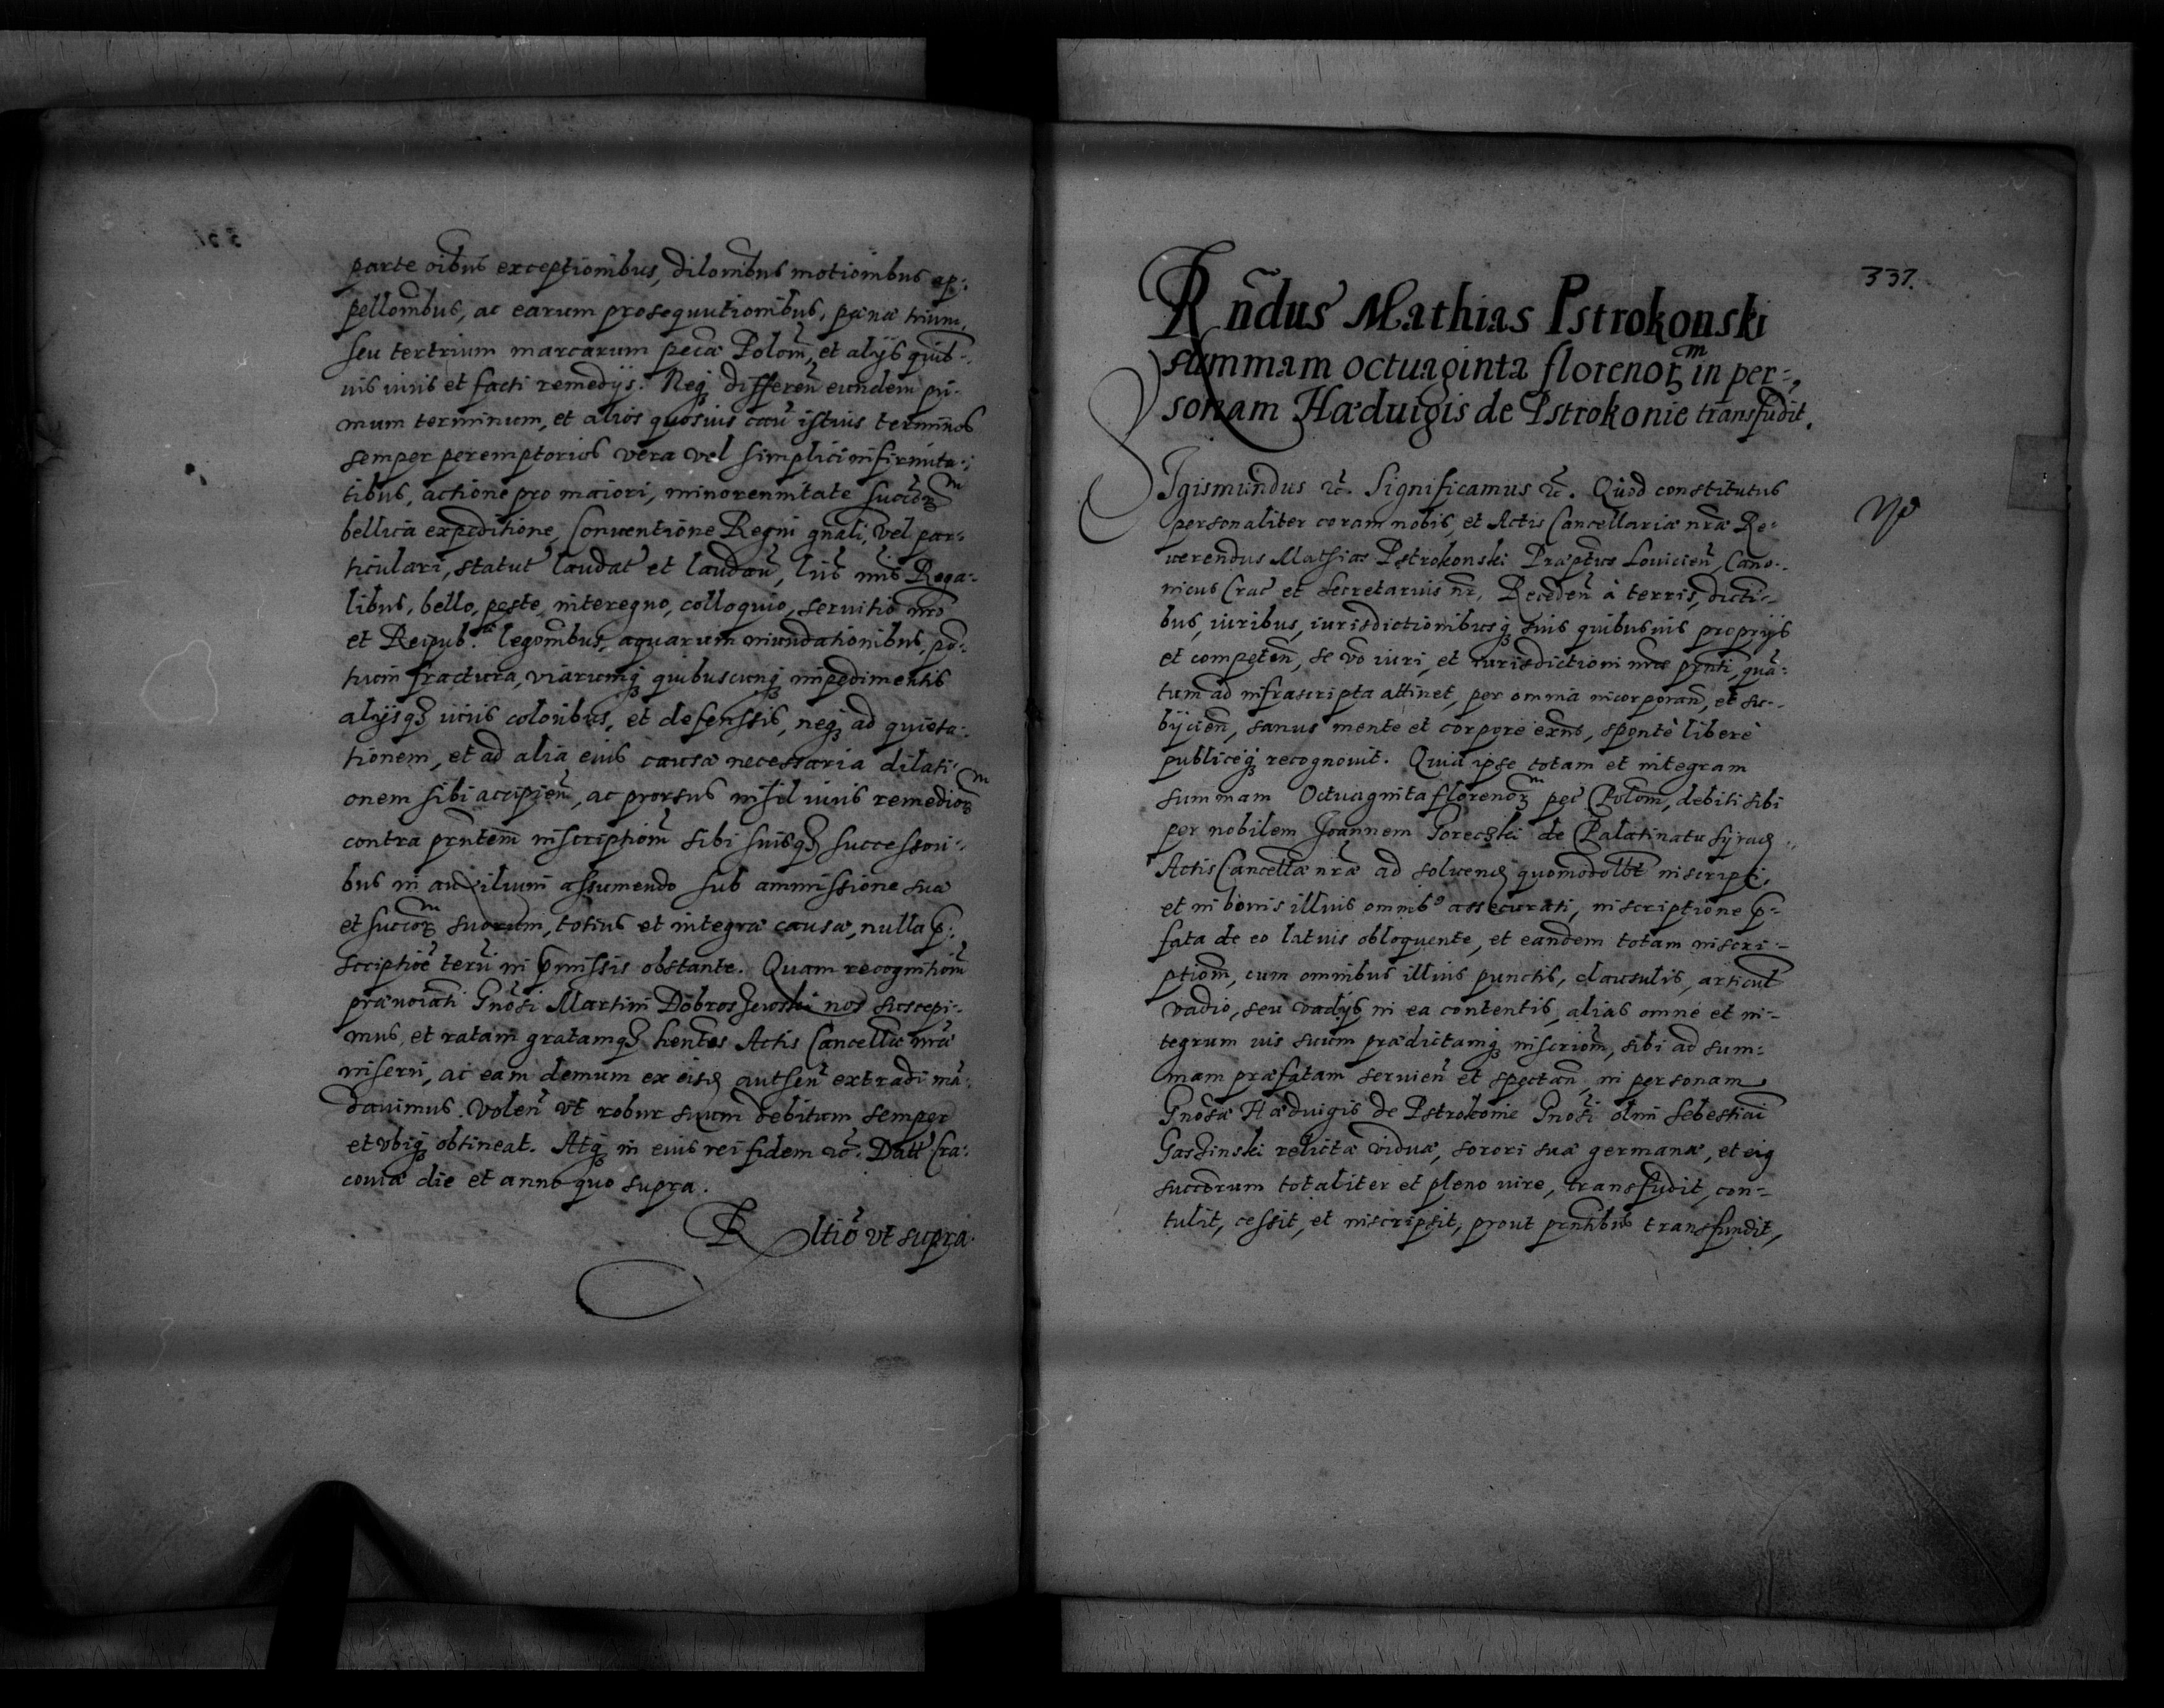 parte oibus exceptionibus, dilonibus motionibus ap-
pellonibus, ac earum prosequutionibus, pœnæ trium,
seu tertrium marcarum pecæ Polon, et alijs quib-
uis iuris et facti remedijs. Neq differen eundem pri-
mum terminum, et alios quosuis istius terminos
semper peremptorios vera vel simplici infirmita-
tibus, actione pro maiori, minorennitate succorm
bellica expeditione, Conuentione Regni gnali, vel par-
ticulari, statut laudat et laudan, lris nris Rega-
libus, bello, peste, interegno, colloquio, seruitio nro
et Reipub. legonibus, aquarum inundationibus, pon-
tium fractura, viarumq quibuscunq impedimentis
alijsq iuris coloribus, et defenssis, neq ad quieta-
tionem, et ad alia eius causæ necessaria dilati-
onem sibi accipien, ac prorsus nihil iuris remediorm
contra prntem inscriptiom sibi suisq successori-
bus in auxilium assumendo sub ammissione suæ
et succorm suorum, totius et integræ causæ, nulla p-
scriptioe terri in pmissis obstante. Quam recognitiom
prænoiati Gnosi Martini Dobroszewski nos suscepi-
mus, et ratam gratamq hentes Actis Cancellæ nræ
inseri, ac eam demum ex eisd authen extradi man-
dauimus. Volen vt robur suum debitum semper
et vbiq obtineat. Atq in eius rei fidem &c. Datt Cra-
couiæ die et anno quo supra.
Rltio vt supra.
337.
Rndus Mathias Pstrokonski
summam octuaginta florenorm in per-
sonam Hæduigis de Pstrokonie transfudit.
Sigismundus &c. Significamus &c. Quod constitutus
personaliter coram nobis, et Actis Cancellariæ nræ Re-
uerendus Mathias Pstrokonski Præptus Louicien, Cano-
nicus Crac et Secretarius nr, Receden à terris, dicti-
bus, iuribus, iurisdictionibusq suis quibusuis proprijs
et competen, se vo iuri, et iurisdictioni nræ prnti, quan-
tum ad infrascripta attinet, per omnia incorporan, et su-
bijcien, sanus mente et corpore exns, spontè liberè
publiceq recognouit. Quia ipse totam et integram
summam Octuaginta florenorm pec Polon, debiti sibi
per nobilem Joannem Goreczki de Palatinatu Syrad
Actis Cancellæ nræ ad soluend quomodolbt inscripti,
et in bonis illius omnibs assecurati, inscriptione p-
fata de eo latius obloquente, et eandem totam inscri-
ptiom, cum omnibus illius punctis, clausulis, articul
vadio, seu vadijs in ea contentis, alias omne et in-
tegrum ius suum prædictamq inscriom, sibi ad sum-
mam præfatam seruien et spectan, in personam
Gnosæ Hæduigis de Pstrokonie Gnosi olim Sebestiani
Gaszinski relictæ viduæ, sorori suæ germanæ, et eig
succorum totaliter et pleno iure, transfudit, con-
tulit, cessit, et inscripsit, prout prntibus transfundit,